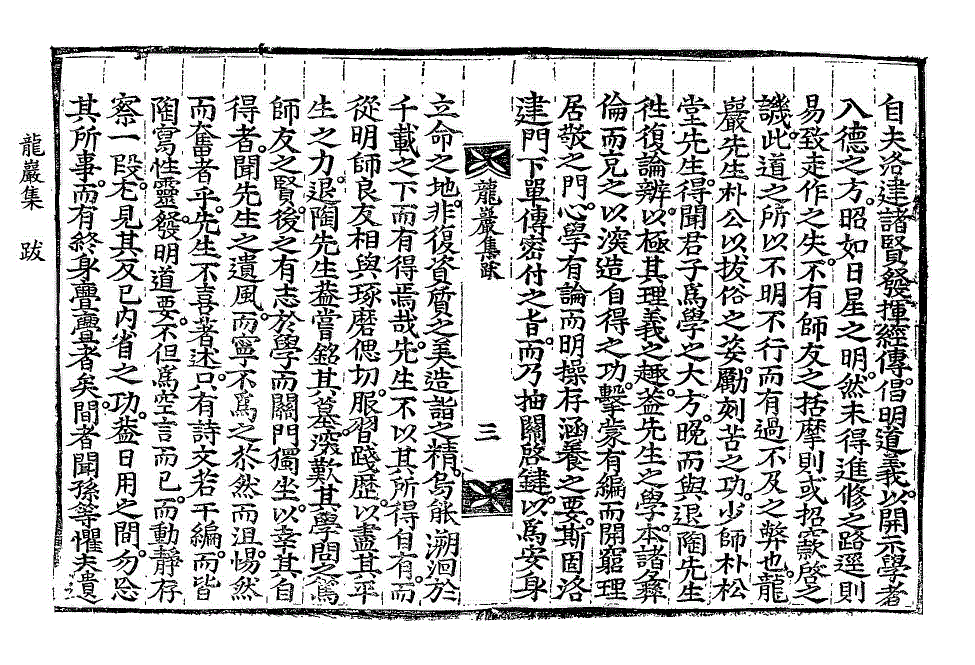 自夫洛建諸賢發揮經傳倡明道義以開示學者
入德之方昭如日星之明然未得進修之路逕則
易致走作之失不有師友之括摩則或招窾啓之
譏此道之所以不明不行而有過不及之弊也龍
巖先生朴公以拔俗之姿勵刻苦之功少師朴松
堂先生得聞君子爲學之大方晩而與退陶先生
徃復論辨以極其理義之趣盖先生之學本諸彝
倫而充之以深造自得之功擊蒙有編而開窮理
居敬之門心學有論而明操存涵養之要斯固洛
建門下單傳密付之旨而乃抽關啓鍵以爲安身
龍巖集跋
三
立命之地非復資質之美造詣之精烏能溯洄於
千載之下而有得焉哉先生不以其所得自有而
從明師良友相與琢磨偲切服習踐歷以盡其平
生之力退陶先生盖嘗銘其墓深歎其學問之篤
師友之賢後之有志於學而關門獨坐以幸其自
得者聞先生之遺風而寧不爲之茶然而沮惕然
而奮者乎先生不喜著述只有詩文若干編而皆
陶寫性靈發明道要不但爲空言而已而動靜存
察一段尤見其反已內省之功盖日用之間勿忘
其所事而有終身亹亹者矣間者聞孫等懼夫遺
龍巖集 跋